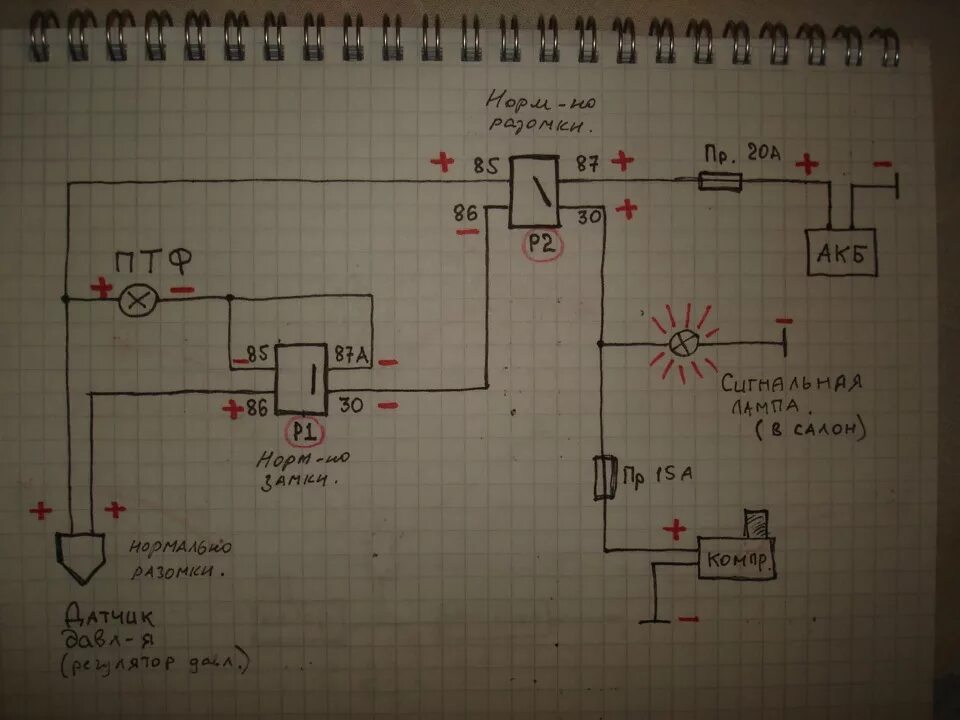 Норм-но
разомкн.
+ 85
87 +
Пр. 20А
+ -
86
-
30 +
Р2
АКБ
ПТФ
+ -
- 85
87А -
+ 86
30 -
Р1
Норм-но
замкн.
-
Сигнальная
лампа.
(в салон)
Пр 15А
+ +
нормально
разомкн.
+
компр.
-
Датчик
давл-я
(регулятор давл.)